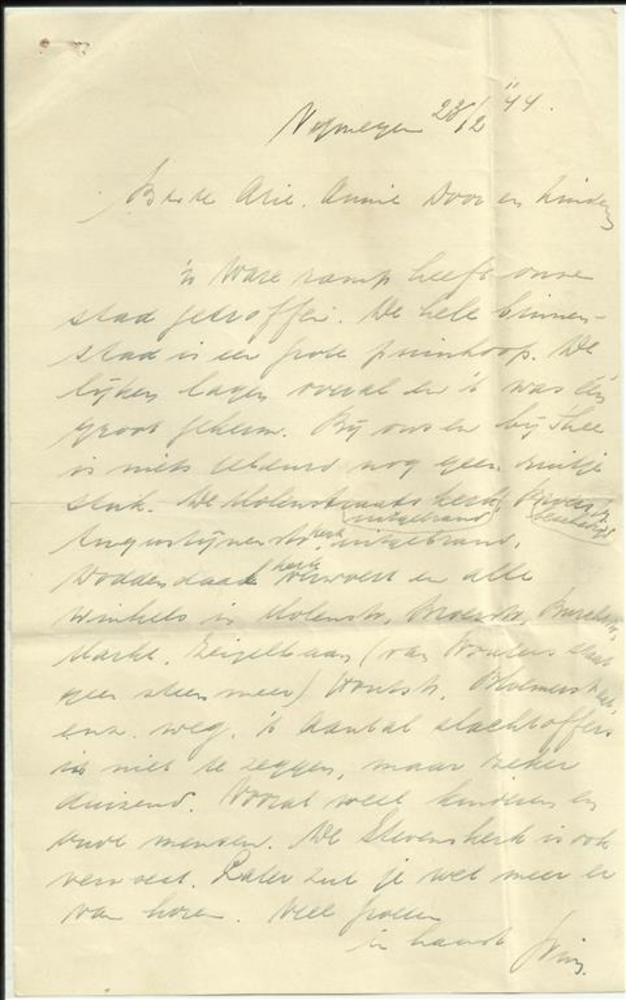 Nijmegen 23/2 '44.
Beste Arie. Annie Door en kinderen
'n Ware ramp heeft onze
stad getroffen. De hele binnen-
stad is een grote puinhoop. De
lijken lagen overal en 't was één
groot geheim. Bij ons en bij Thee
is niets gebeurd nog geen ruitje
stuk. De Molenstraatskerk, Broerst.
uitgebrand beschadigd
Augustijnenstr kerk uitgebrand,
Doddendaal kerk verwoest en alle
winkels in Molenstr, Broerstr, Burchtstr,
Markt, Zeigelbaan (van Wouters staat
geen steen meer) Houtstr. Bloemerstraat,
enz. weg. 't Aantal slachtoffers
is niet te zeggen, maar zeker
duizend. Vooral veel kinderen en
oude mensen. De Stevenskerk is ook
verwoest. Later zul je wel meer er
van horen. Veel groeten
in haast Wim.